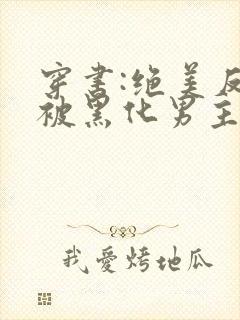 穿书:绝美反
被黑化男主
我愛烤地瓜